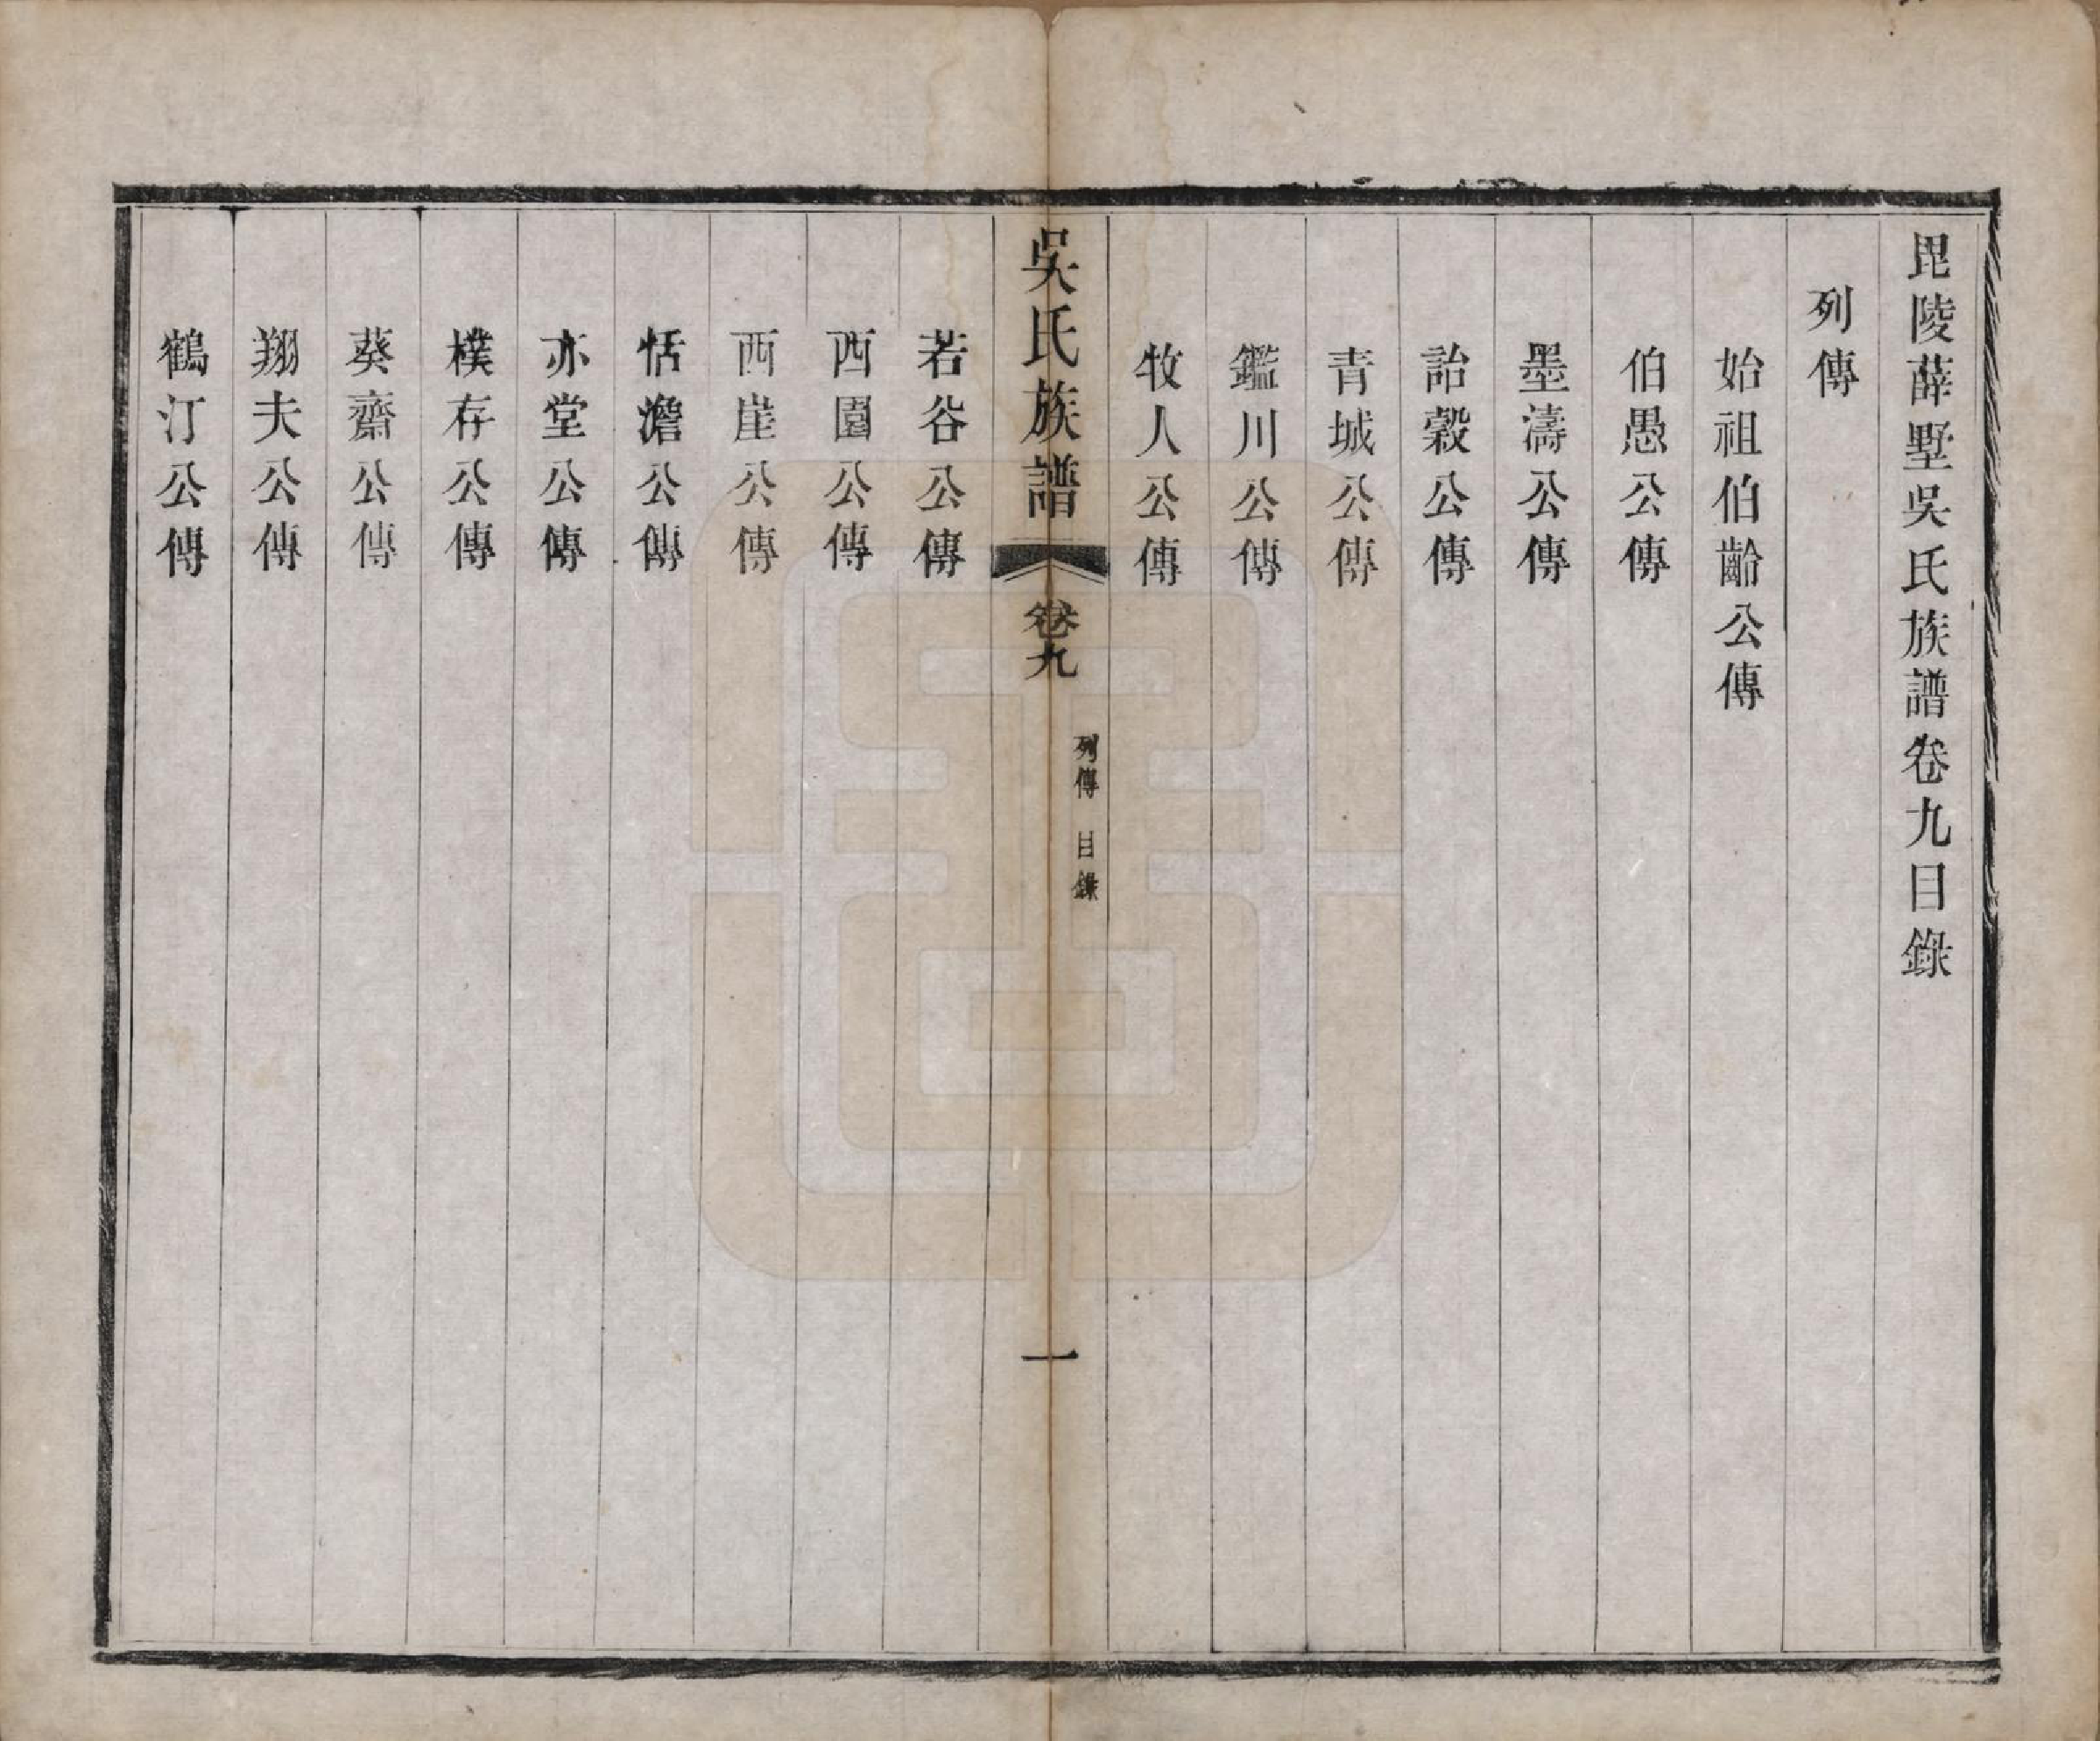 毘陵薛墅吳氏族譜卷九目錄
列傳
始祖伯齡公傳
伯愚公傳
墨濤公傳
詒穀公傳
青城公傳
鑑川公傳
牧人公傳
吳氏族譜
卷九
列傳 目錄
一
若谷公傳
西園公傳
西崖公傳
恬澹公傳
亦堂公傳
樸存公傳
葵齋公傳
翔夫公傳
鶴汀公傳